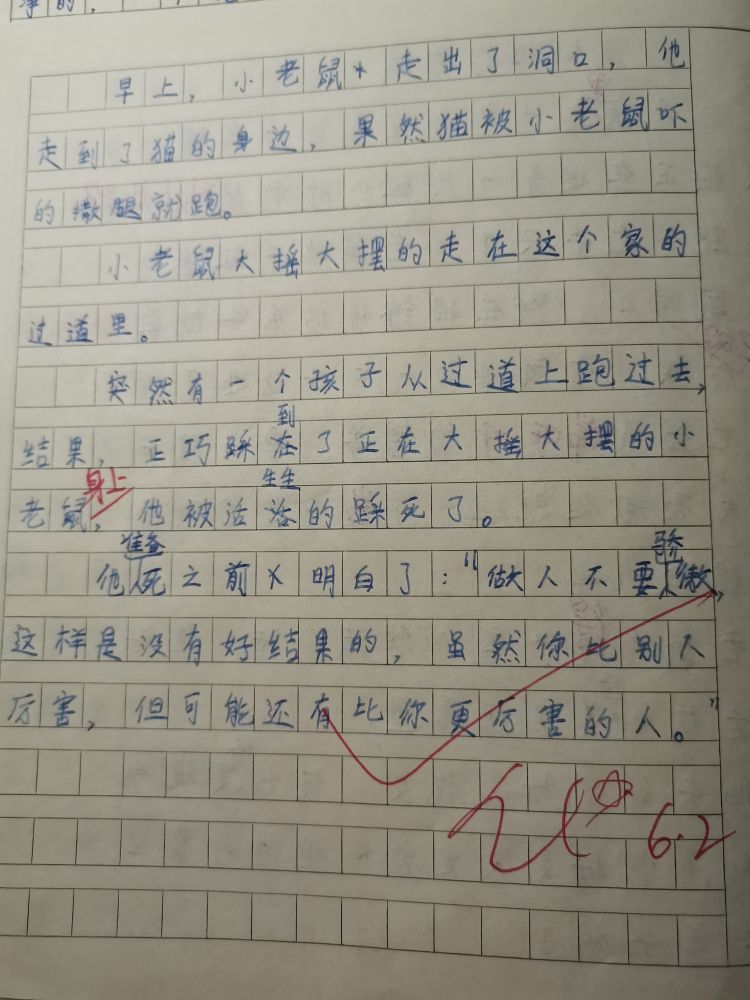 净的，
早上，小老鼠走出了洞口，他
走到了猫的身边，果然猫被小老鼠吓
的撒腿就跑。
小老鼠大摇大摆的走在这个家的
过道里。
突然有一个孩子从过道上跑过去，
到
结果，正巧踩在了正在大摇大摆的小
身上
生生
老鼠，他被活活的踩死了。
准备
骄
他死之前明白了：“做人不要傲，
这样是没有好结果的，虽然你比别人
厉害，但可能还有比你更厉害的人。”
6.2